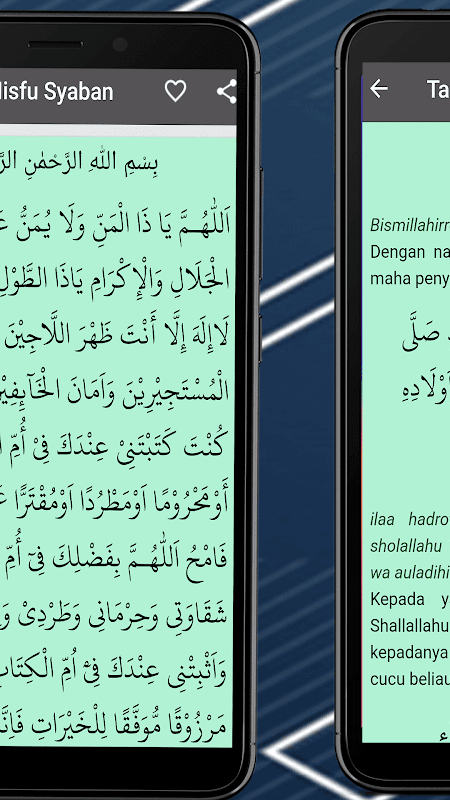 isfu Syaban
بِسْمِ اللهِ الرَّحْمٰنِ
اَللّٰهُمَّ يَا ذَا الْمَنِّ وَلَا يُمَنُّ
الْجَلَالِ وَالْإِكْرَامِ يَاذَا الطَّوْلِ
لَاإِلَهَ إِلَّا أَنْتَ ظَهْرَ اللَّاجِيْنَ
الْمُسْتَجِيْرِيْنَ وَاَمَانَ الْخَآئِفِيْ
كُنْتَ كَتَبْتَنِيْ عِنْدَكَ فِيْ أُمِّ
أَوْمَحْرُوْمًا اَوْمَطْرُدًا اَوْمُقْتَرًّا
فَامْحُ اَللّٰهُمَّ بِفَضْلِكَ فِيْ أُمِّ
شَقَاوَتِي وَحِرْمَانِي وَطَرْدِيْ
وَاَثْبِتْنِي عِنْدَكَ فِيْ اُمِّ الْكِتَابِ
مَرْزُوْقًا مُوَفَّقًا لِلْخَيْرَاتِ
Ta
Bismillahirr
Dengan na
maha peny
صَلَّى
اَوْلَادِهِ
ilaa hadro
sholallahu
wa auladihi
Kepada ya
Shallallahu
kepadanya
cucu beliau